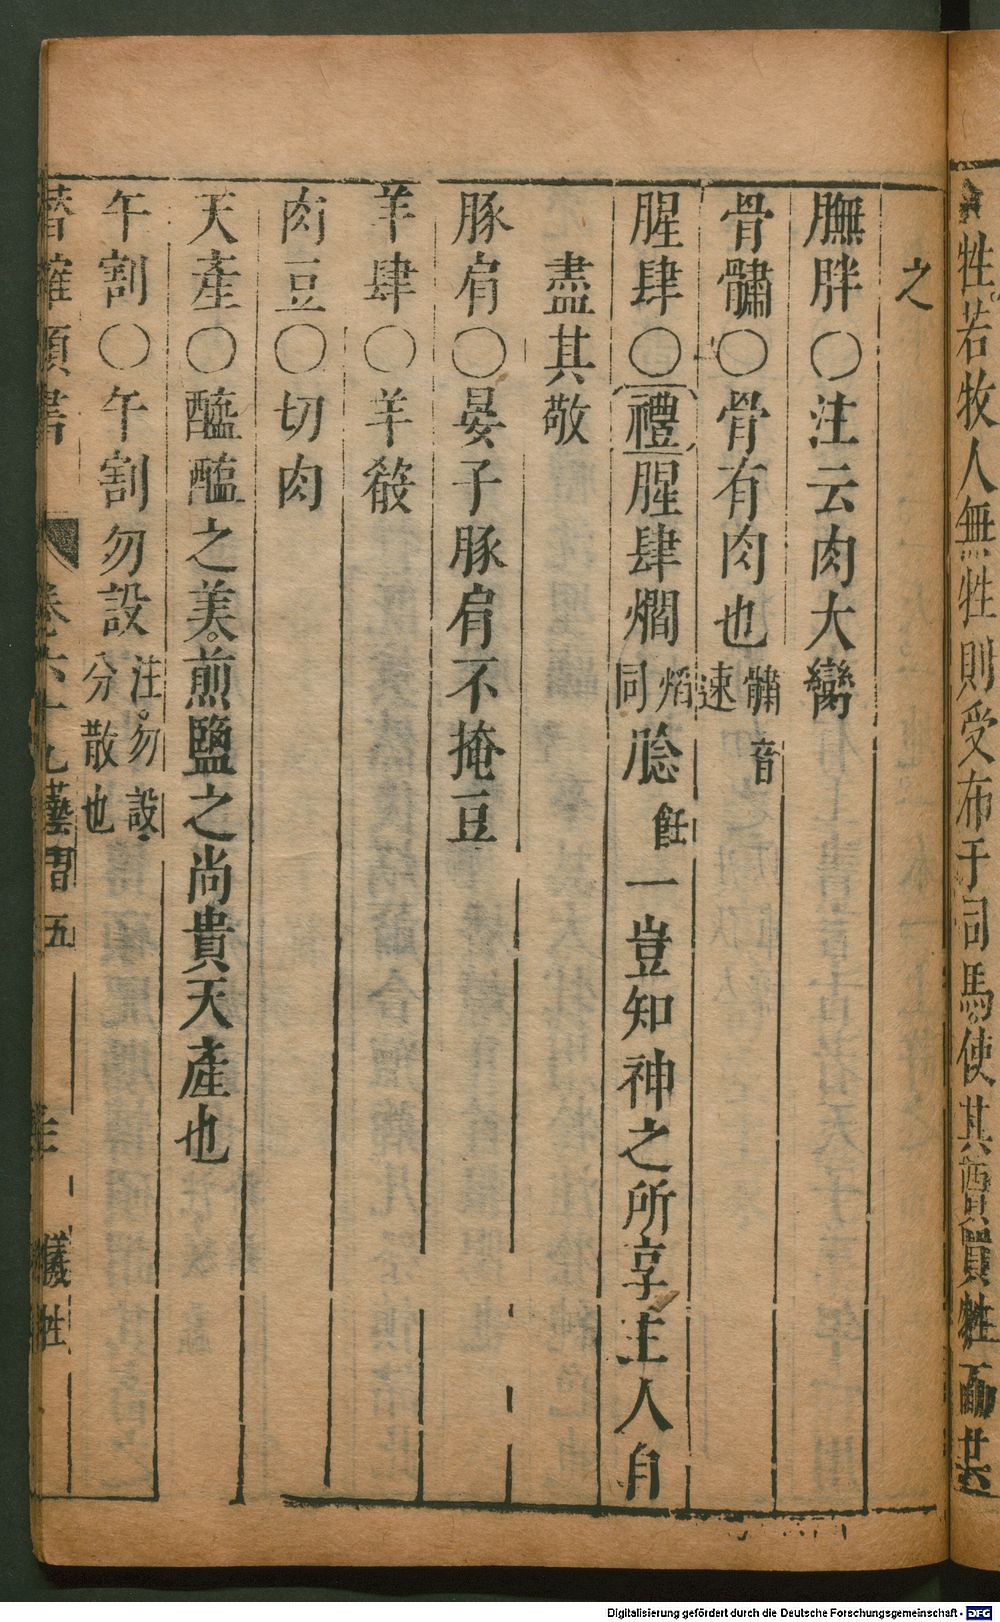 牲若牧人無牲則受布于司馬使其賈買牲而共
之
膴胖〇注云肉大臠
骨鱐〇骨有肉也鱐音速
腥肆〇禮腥肆爓焰同腍飪一豈知神之所享主人自
盡其敬
豚肩〇晏子豚肩不掩豆
羊肆〇羊殽
肉豆〇切肉
天產〇醯醢之美煎鹽之尚貴天產也
午割〇午割勿設注勿設分散也
潛確類書 卷六十九藝習五 犧牲
Digitalisierung gefördert durch die Deutsche Forschungsgemeinschaft - DFG